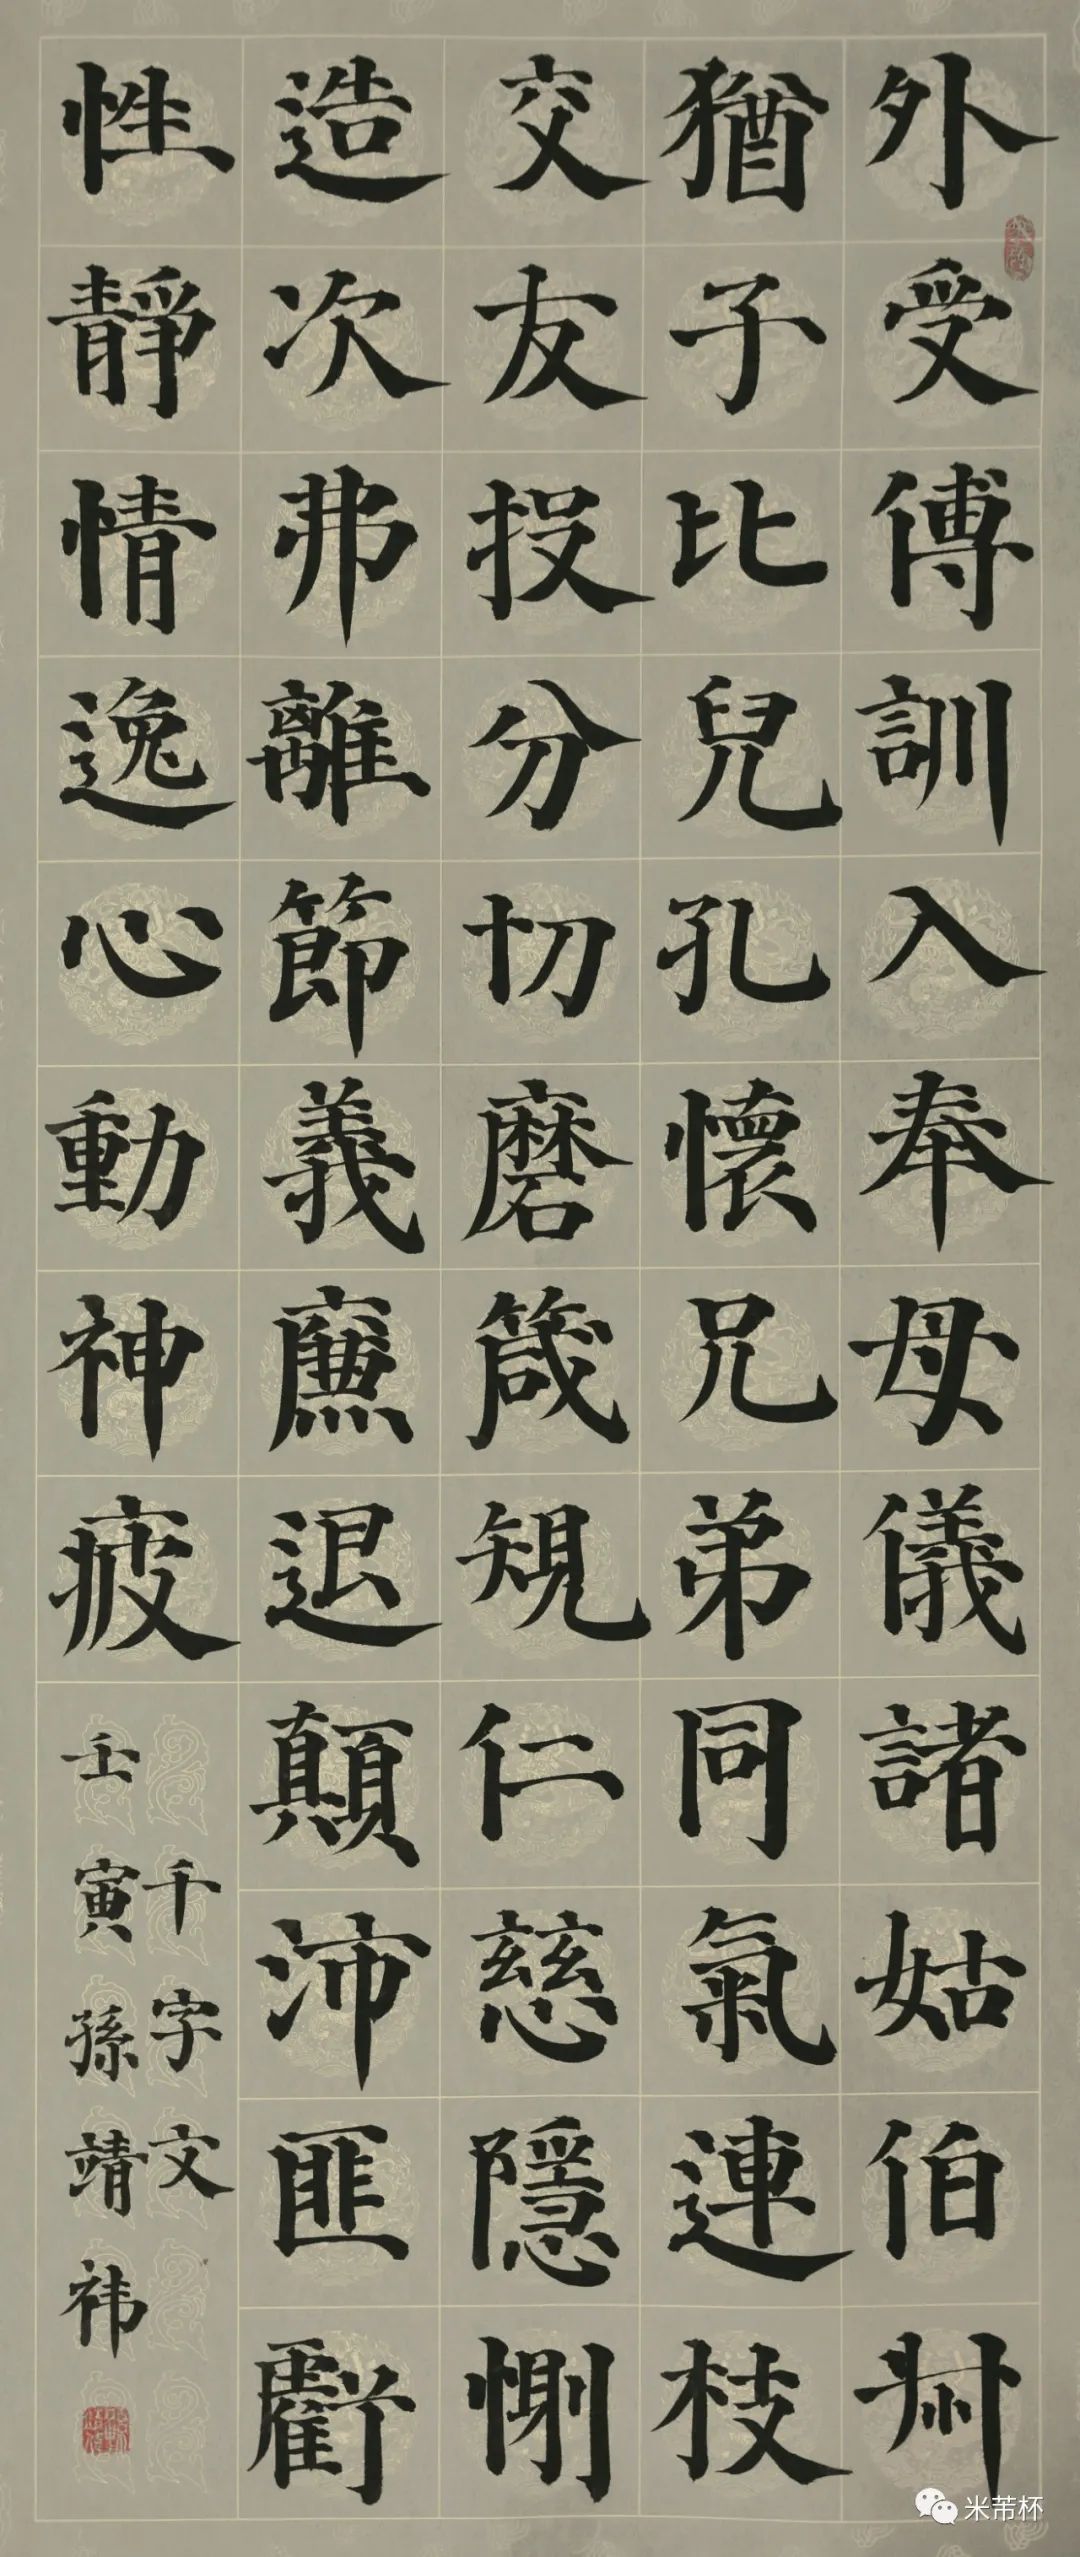 外受傅訓入奉母儀諸姑伯叔
猶子比兒孔懷兄弟同氣連枝
交友投分切磨箴規仁慈隱惻
造次弗離節義廉退顛沛匪虧
性靜情逸心動神疲
千字文
壬寅孫靖祎
米芾杯